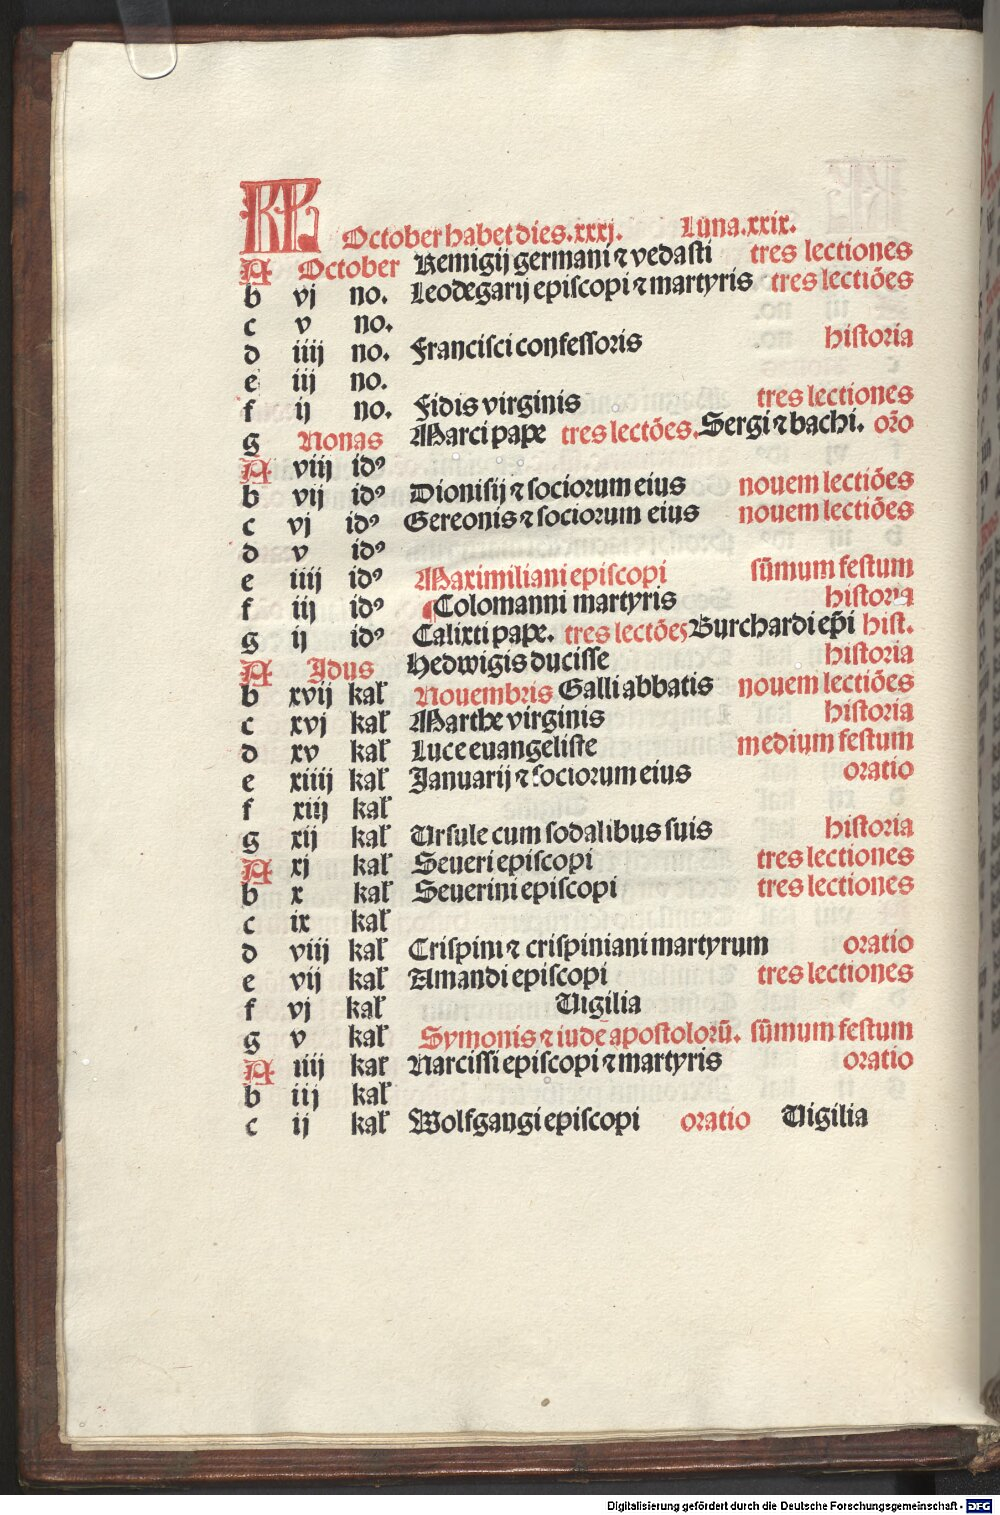 KL October habet dies.xxxj. Luna.xxix.
A October Remigij germani ⁊ vedasti tres lectiones
b vj no. Leodegarij episcopi ⁊ martyris tres lectiões
c v no.
d iiij no. Francisci confessoris historia
e iij no.
f ij no. Fidis virginis tres lectiones
g Nonas Marci pape tres lectões. Sergi ⁊ bachi. orõ
A viij idꝰ
b vij idꝰ Dionisij ⁊ sociorum eius nouem lectiões
c vj idꝰ Gereonis ⁊ sociorum eius nouem lectiões
d v idꝰ
e iiij idꝰ Maximiliani episcopi sũmum festum
f iij idꝰ ¶Colomanni martyris historia
g ij idꝰ Calixti pape. tres lectões Burchardi ep̃i hist.
A Idus Hedwigis ducisse historia
b xvij kal' Nouembris Galli abbatis nouem lectiões
c xvj kal' Marthe virginis historia
d xv kal' Luce euangeliste medium festum
e xiiij kal' Januarij ⁊ sociorum eius oratio
f xiij kal'
g xij kal' Ursule cum sodalibus suis historia
A xj kal' Seueri episcopi tres lectiones
b x kal' Seuerini episcopi tres lectiones
c ix kal'
d viij kal' Crispini ⁊ crispiniani martyrum oratio
e vij kal' Amandi episcopi tres lectiones
f vj kal' Vigilia
g v kal' Symonis ⁊ iude apostolorũ. sũmum festum
A iiij kal' Narcissi episcopi ⁊ martyris oratio
b iij kal'
c ij kal' Wolfgangi episcopi oratio Vigilia
Digitalisierung gefördert durch die Deutsche Forschungsgemeinschaft - DFG